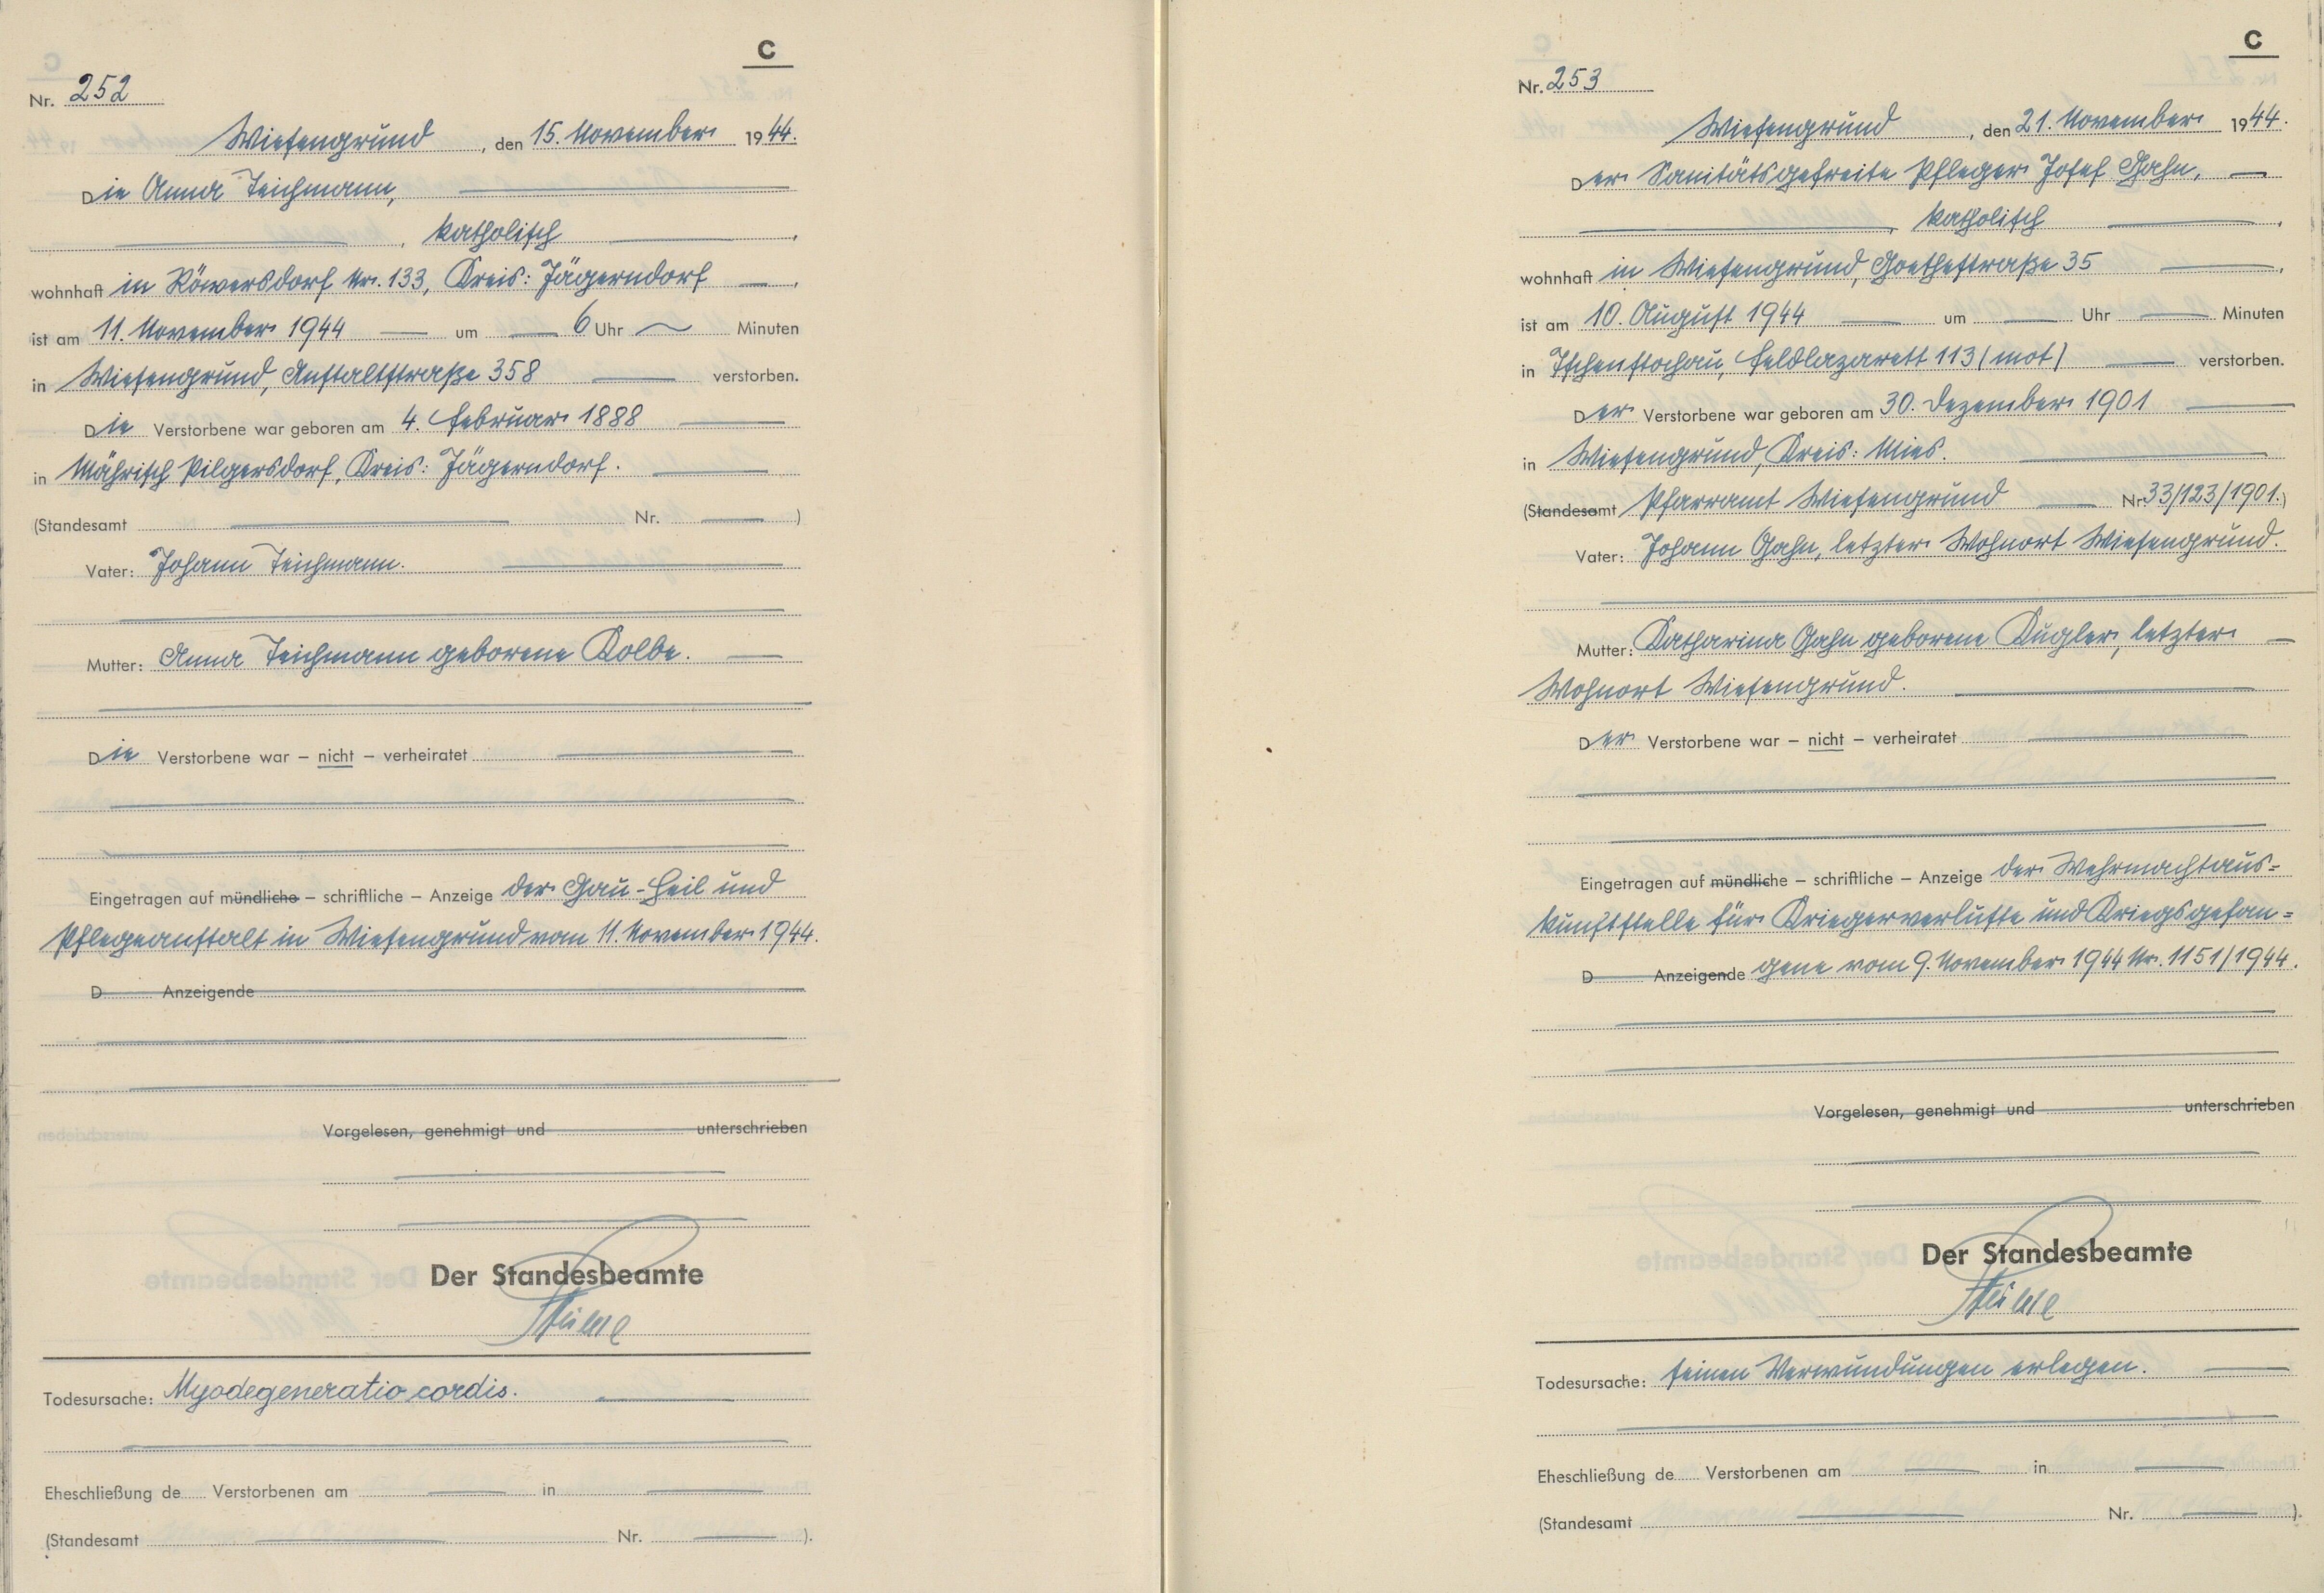 C
Nr. 252
Wiesengrund, den 15. November 1944.
Die Anna Teichmann,
, katholisch,
wohnhaft in Röwersdorf Nr. 133, Kreis: Jägerndorf,
ist am 11. November 1944 um 6 Uhr Minuten
in Wiesengrund, Anstaltstraße 358 verstorben.
Die Verstorbene war geboren am 4. Februar 1888
in Mährisch Pilgersdorf, Kreis: Jägerndorf.
(Standesamt Nr. )
Vater: Johann Teichmann.
Mutter: Anna Teichmann geborene Kolbe.
Die Verstorbene war – nicht – verheiratet
Eingetragen auf mündliche – schriftliche – Anzeige der Gau-Heil und
Pflegeanstalt in Wiesengrund vom 11. November 1944.
D Anzeigende
Vorgelesen, genehmigt und unterschrieben
Der Standesbeamte
Todesursache: Myodegeneratio cordis.
Eheschließung de Verstorbenen am in
(Standesamt Nr. ).
C
Nr. 253
Wiesengrund, den 21. November 1944.
Der Sanitätsgefreite Pfleger Josef Hahn,
, katholisch,
wohnhaft in Wiesengrund, Goethestraße 35,
ist am 10. August 1944 um Uhr Minuten
in Tschenstochau, Feldlazarett 113 (mot) verstorben.
Der Verstorbene war geboren am 30. Dezember 1901
in Wiesengrund, Kreis: Mies.
(Standesamt Pfarramt Wiesengrund Nr. 33/123/1901.)
Vater: Johann Hahn, letzter Wohnort Wiesengrund.
Mutter: Katharina Hahn geborene Kugler, letzter
Wohnort Wiesengrund.
Der Verstorbene war – nicht – verheiratet
Eingetragen auf mündliche – schriftliche – Anzeige der Wehrmachtaus=
kunftstelle für Kriegerverluste und Kriegsgefan=
D Anzeigende gene vom 9. November 1944 Nr. 1151/1944.
Vorgelesen, genehmigt und unterschrieben
Der Standesbeamte
Todesursache: seinen Verwundungen erlegen.
Eheschließung de Verstorbenen am in
(Standesamt Nr. ).